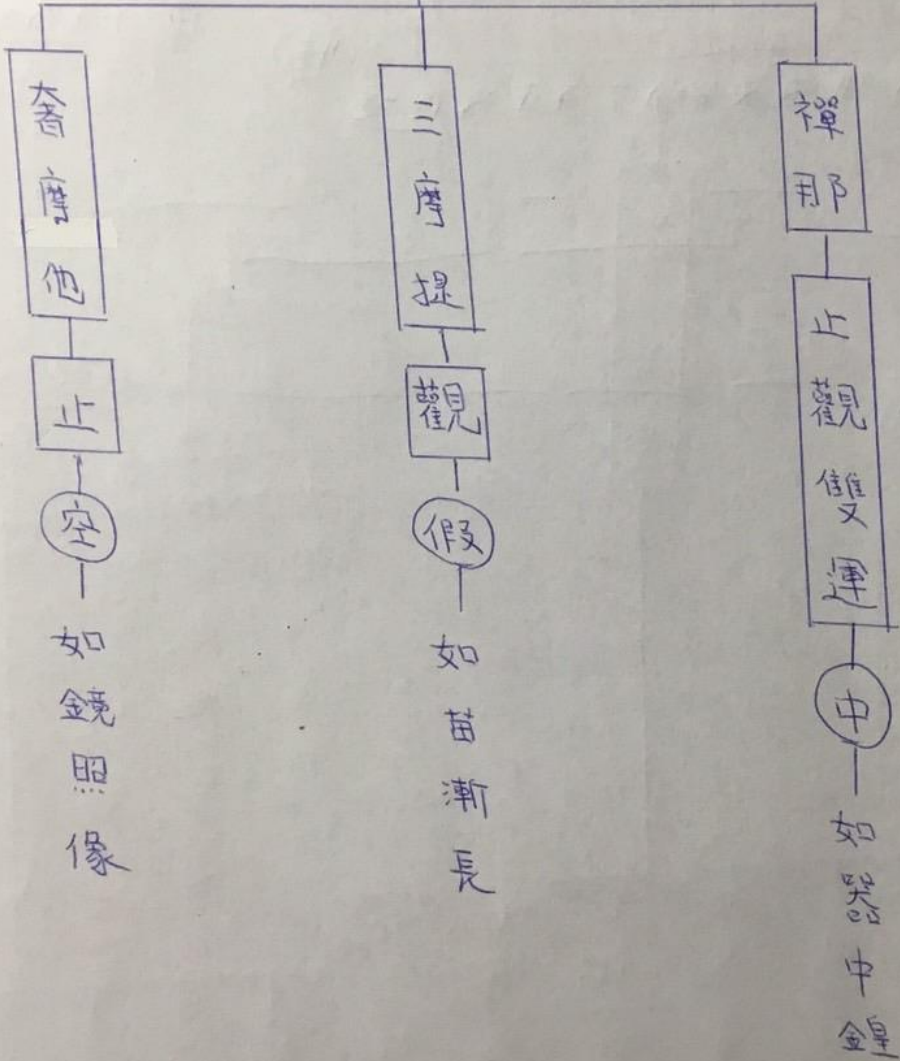 奢摩他
止
空
如鏡照像
三摩提
觀
假
如苗漸長
禪那
止觀雙運
中
如器中鍠